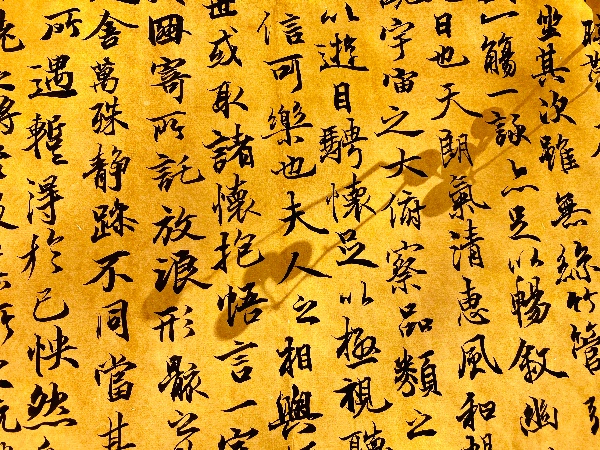 坐其次雖無絲竹管
一觴一詠亦足以暢叙幽
日也天朗氣清惠風和暢
宇宙之大俯察品類之
以遊目騁懷足以極視聽
信可樂也夫人之相與
世或取諸懷抱悟言一室
因寄所託放浪形骸之
舍萬殊静躁不同當其
所遇蹔得於己怏然